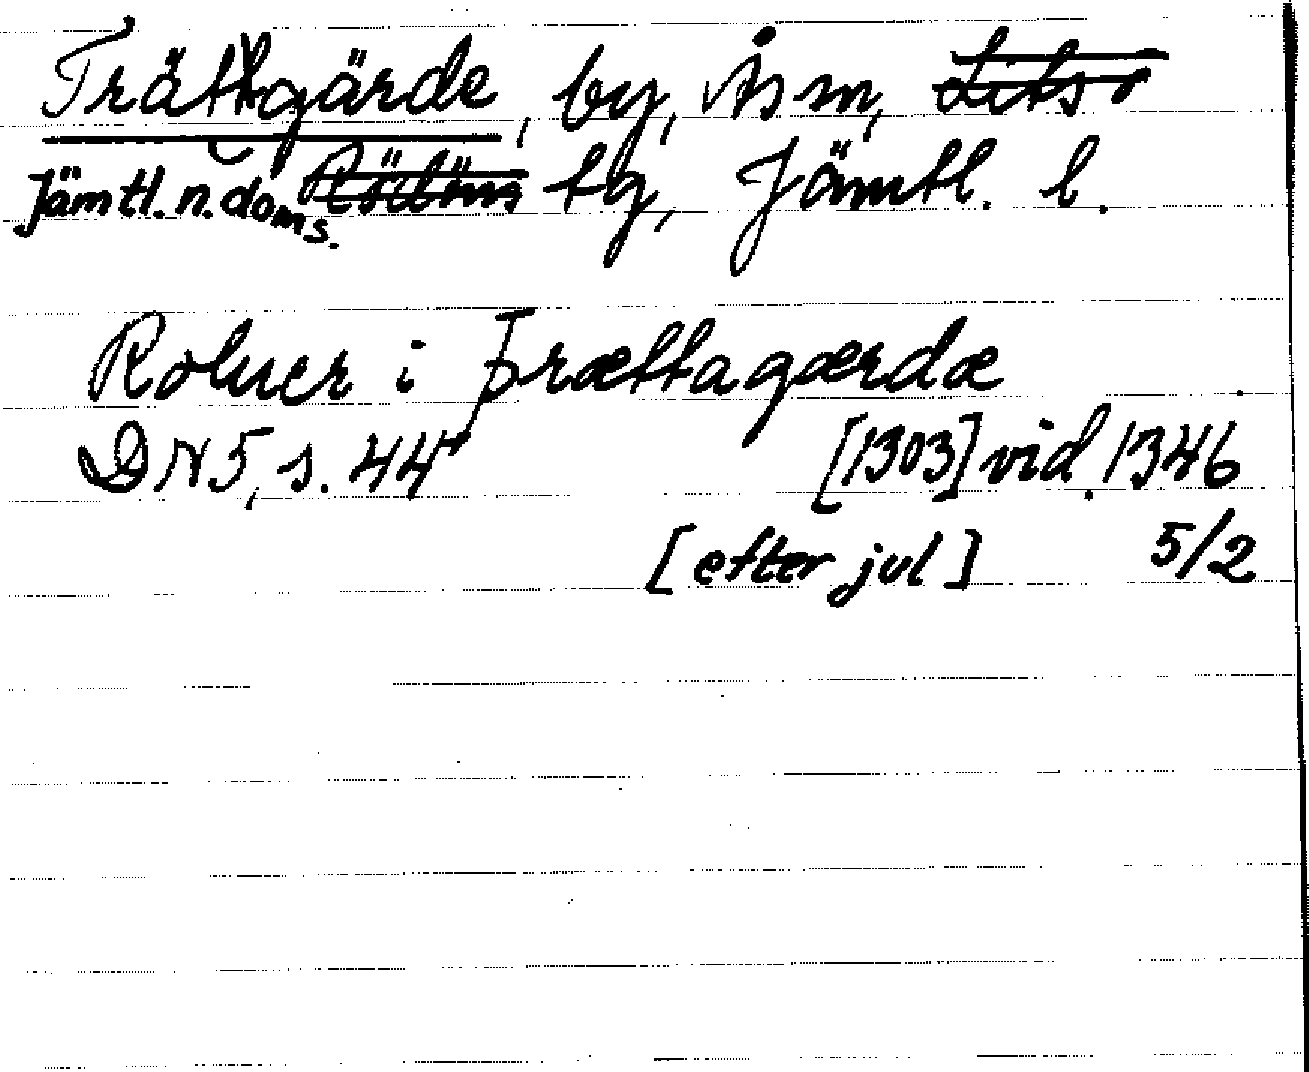 Trättgärde, by, Ås sn, Lits o
Jämtl. n. doms. Rödöns tg, Jämtl. l.
Roluer i Þrættagærdæ
DN 5, s. 44 [1303] vid. 1346
[efter jul] 5/2